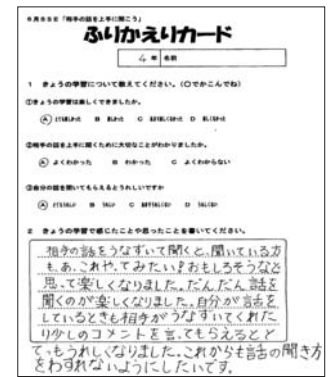 6月5日「相手の話を上手に聞こう」
ふりかえりカード
4 年 名前
1 きょうの学習について教えてください。(○でかこんでね)
①きょうの学習は楽しくできましたか。
A とても楽しかった B 楽しかった C あまり楽しくなかった D 楽しくなかった
②相手の話を上手に聞くために大切なことがわかりましたか。
A よくわかった B わかった C よくわからない
③自分の話を聞いてもらえるとうれしいですか
A とてもうれしい B うれしい C あまりうれしくない D うれしくない
2 きょうの学習で感じたことや思ったことを書いてください。
相手の話をうなずいて聞くと、聞いている方
も、あ、これやってみたい!おもしろそうなど
思って楽しくなりました。だんだん話を
聞くのが楽しくなりました。自分が話を
しているときも相手がうなずいてくれた
り少しのコメントを言ってもらえるとと
てもうれしくなりました。これからも話の聞き方
をわすれないようにしたいです。